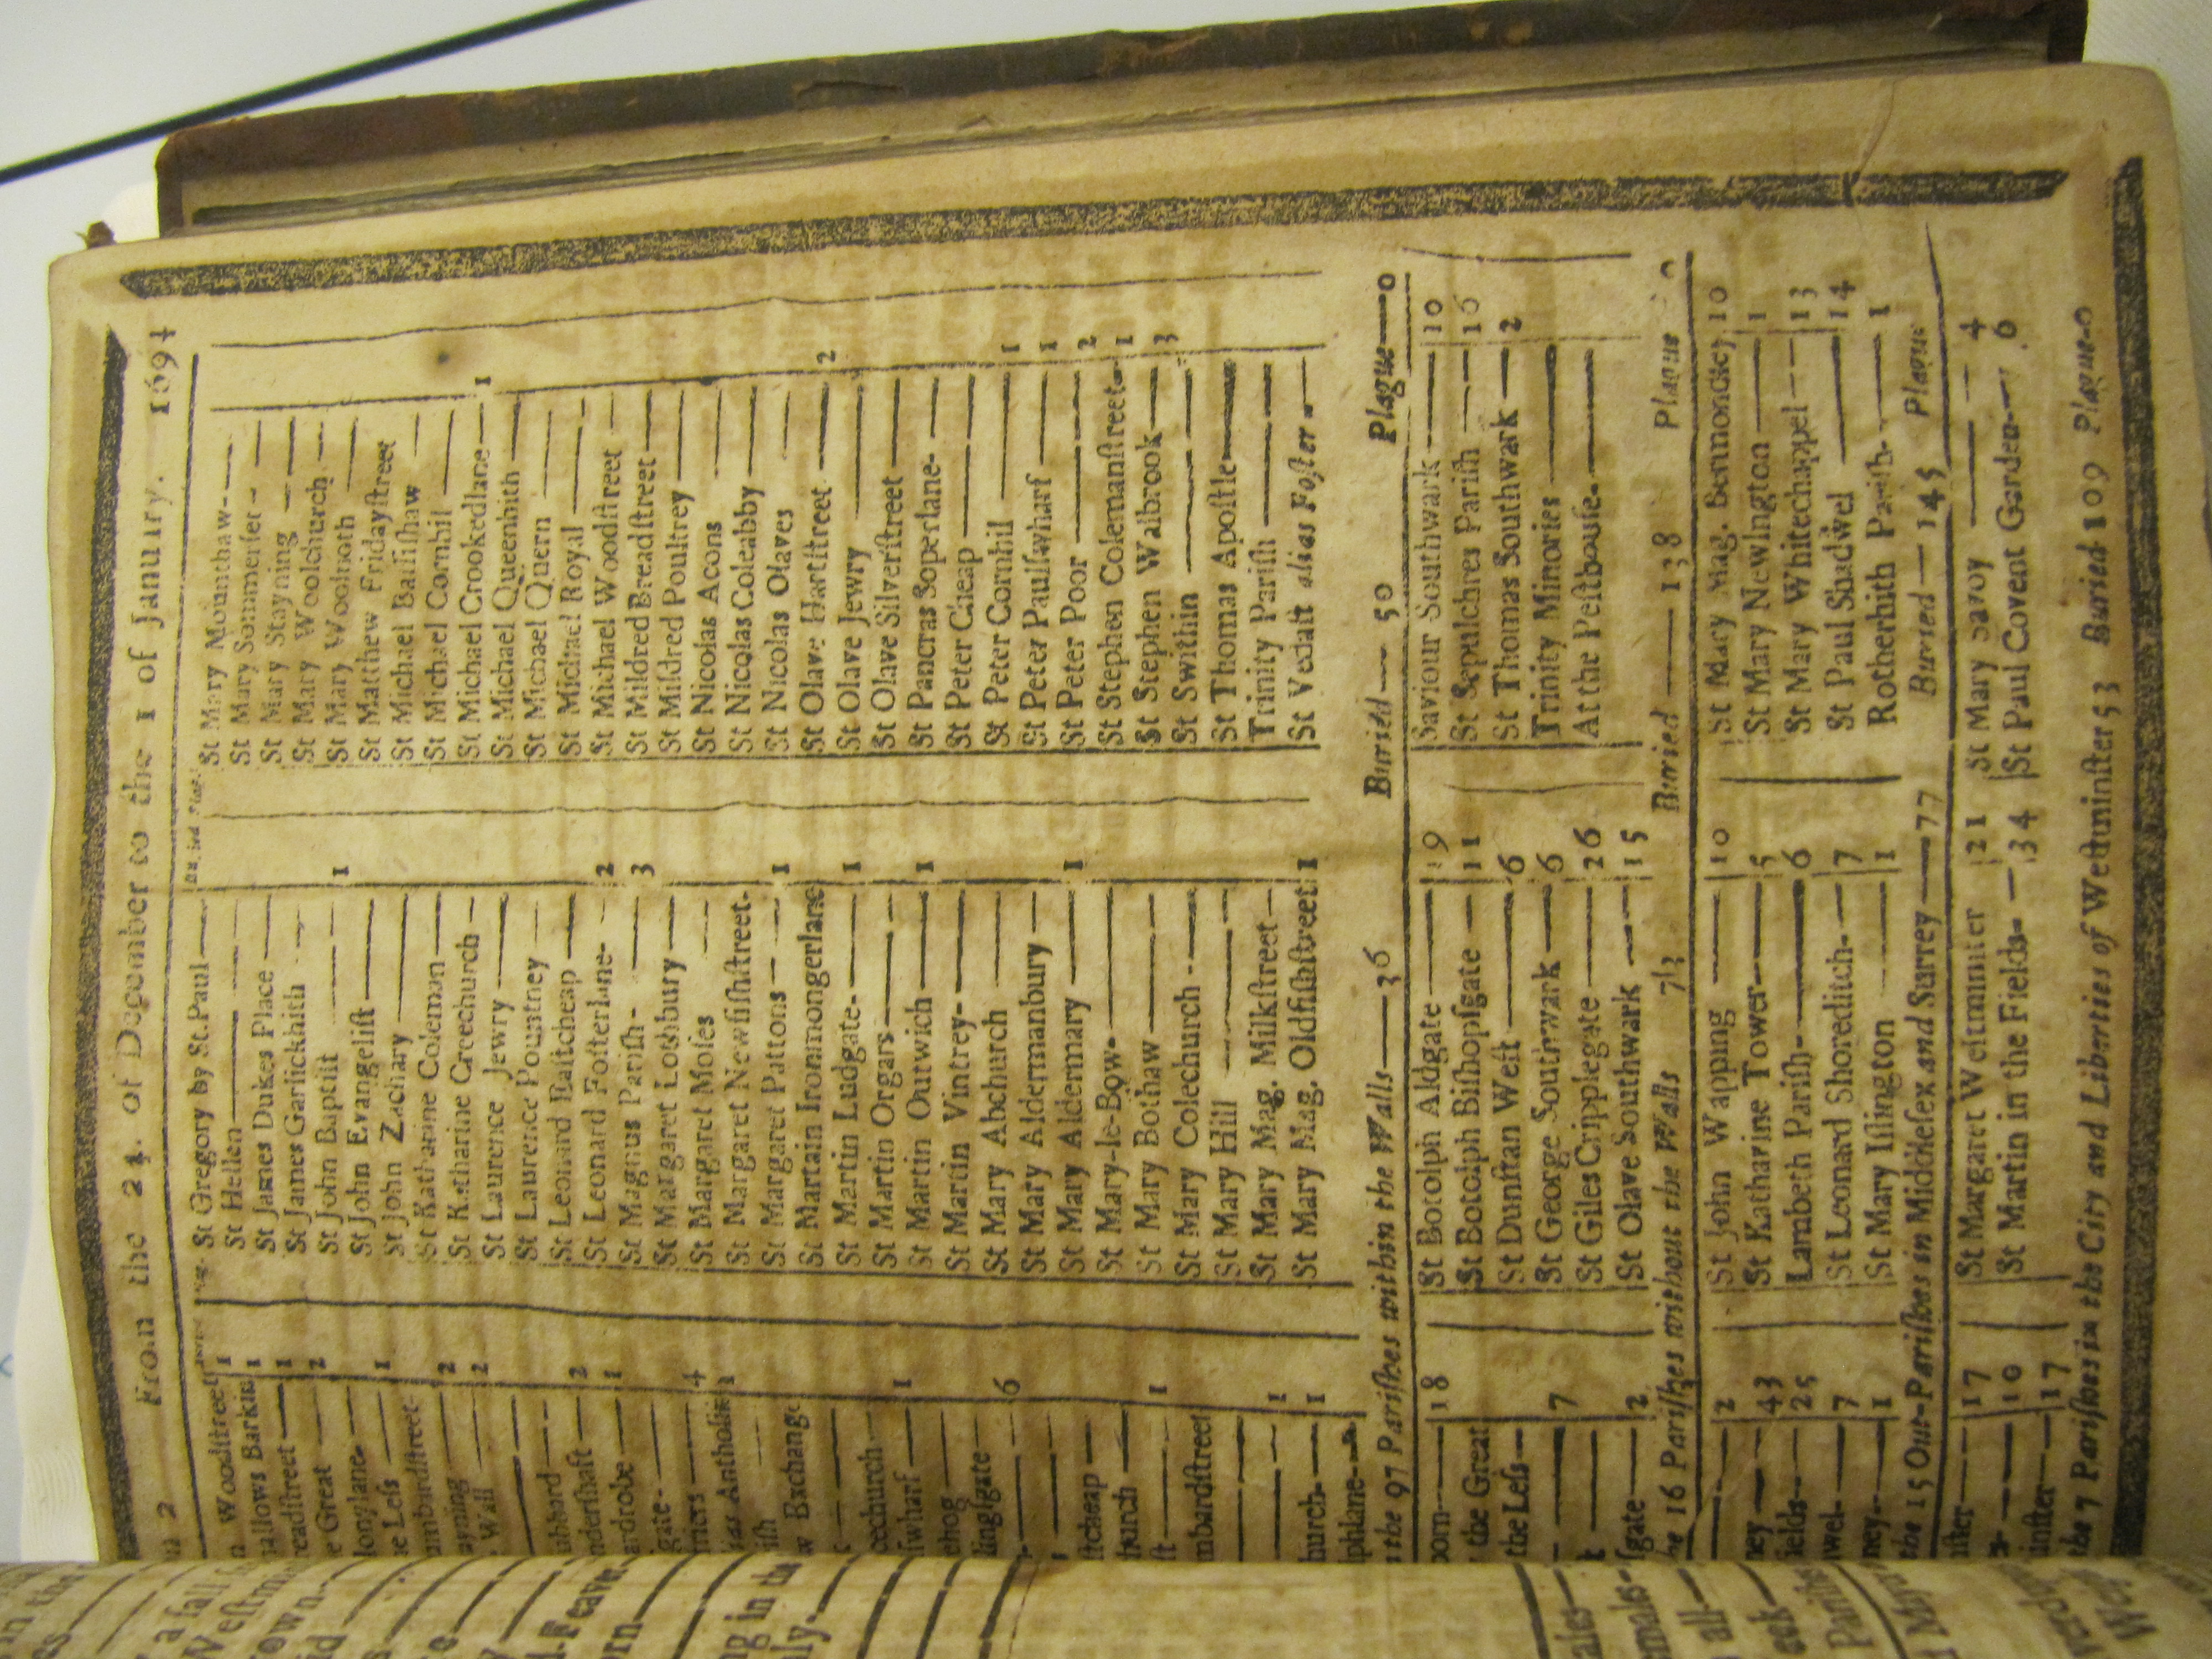 From the 24. of December to the 1 of January. 1694
n Woodstreet 1
hallows Barkin 1
readstreet 1
e Great 2
longlane
he Less 1
umburdstreet
ayning 2
Wall 2
ubbard
ndershaft 2
ardrobe 1
gate
friers 4
ias Antholin 1
ish
w Exchange
eechurch
swharf 1
thog
lingsgate
6
stcheap
hurch
st 1
mbardstreet
1
hurch 1
phlane
St Gregory by St.Paul
St Hellen
St James Dukes Place
St James Garlickhith
St John Baptist 1
St John Evangelist
St John Zachary
St Katharine Coleman
St Katharine Creechurch
St Laurence Jewry
St Laurence Pountney
St Leonard Eastcheap
St Leonard Fosterlane 2
St Magnus Parish 3
St Margaret Lothbury
St Margaret Moses
St Margaret Newfishstreet
St Margaret Pattons 1
St Martain Ironmongerlane
St Martin Ludgate 1
St Martin Orgars
St Martin Outwich 1
St Martin Vintrey
St Mary Abchurch
St Mary Aldermanbury
St Mary Aldermary 1
St Mary-le-Bow
St Mary Bothaw
St Mary Colechurch
St Mary Hill
St Mary Mag. Milkstreet
St Mary Mag. Oldfishstreet 1
St Mary Mounthaw
St Mary Sommerset
St Mary Stayning
St Mary Woolchurch
St Mary Woolnoth
St Matthew Fridaystreet
St Michael Bassishaw
St Michael Cornhil
St Michael Crookedlane 1
St Michael Queenhith
St Michael Quern
St Michael Royal
St Michael Woodstreet
St Mildred Breadstreet
St Mildred Poultrey
St Nicolas Acons
St Nicolas Coleabby
St Nicolas Olaves
St Olave Hartstreet 2
St Olave Jewry
St Olave Silverstreet
St Pancras Soperlane
St Peter Cheap
St Peter Cornhil 1
St Peter Paulswharf 1
St Peter Poor 2
St Stephen Colemanstreet 1
St Stephen Walbrook 3
St Swithin
St Thomas Apostle
Trinity Parish
St Vedast alias Foster
the 97 Parishes within the Walls 36 Buried 50 Plague 0
born 18
the Great
the Less
7
sgate 2
St Botolph Aldgate 19
St Botolph Bishopsgate 11
St Dunstan West 6
St George Southwark 6
St Giles Cripplegate 26
St Olave Southwark 15
Saviour Southwark 10
St Sepulchres Parish 16
St Thomas Southwark 2
Trinity Minories
At the Pesthouse
he 16 Parishes without the Walls 73 Buried 138 Plague 0
2
ney 43
ields 25
wel 7
ney 1
St John Wapping 10
St Katharine Tower 5
Lambeth Parish 6
St Leonard Shoreditch 7
St Mary Islington 1
St Mary Mag. Bermondsey 10
St Mary Newington 1
St Mary Whitechappel 13
St Paul Shadwel 14
Rotherhith Parish 1
the 15 Out-Parishes in Middlesex and Surrey 77 Buried 145 Plague
ister 17
10
inster 17
St Margaret Westminster 21
St Martin in the Fields 34
St Mary Savoy 4
St Paul Covent Garden 6
the 7 Parishes in the City and Liberties of Westminster 53 Buried 109 Plague 0